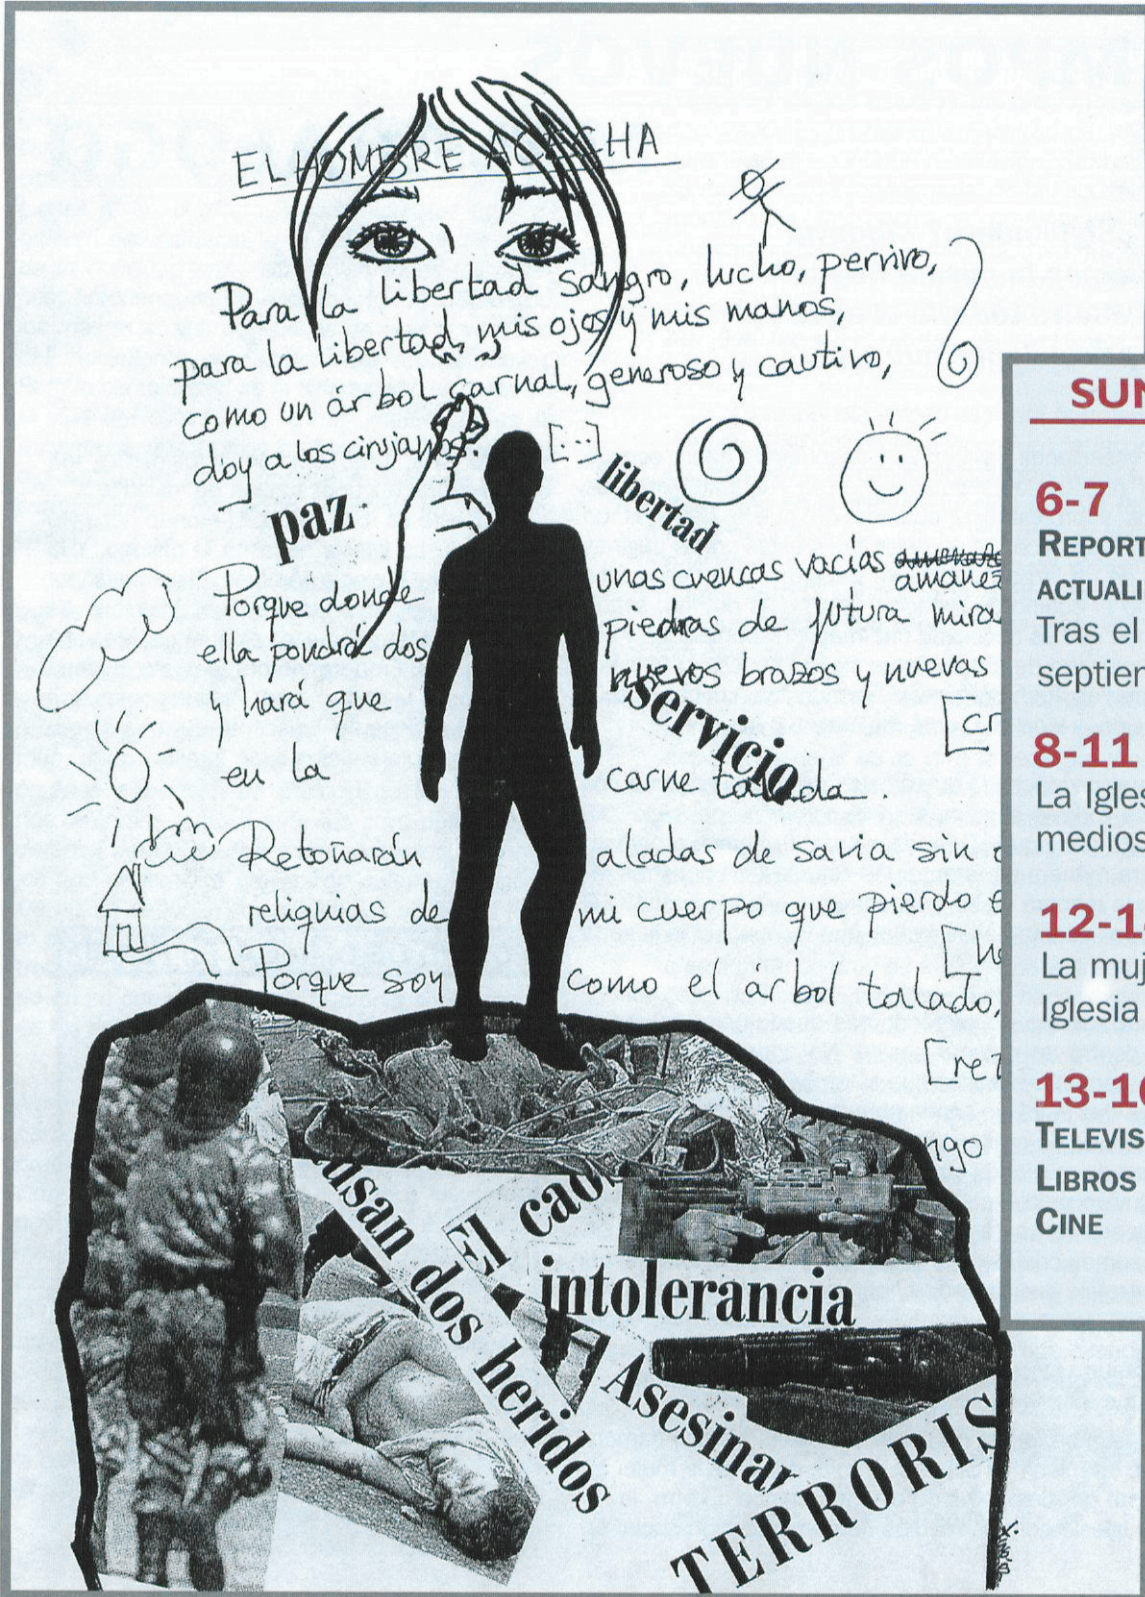 EL HOMBRE ACECHA
Para la libertad sangro, lucho, pervivo,
para la libertad, mis ojos y mis manos,
como un árbol carnal, generoso y cautivo,
doy a los cirujanos.
[...]
paz
libertad
Porque donde unas cuencas vacías amanez
ella pondrá dos piedras de futura mira
y hará que nuevos brazos y nuevas
servicio
[cr
en la carne talada.
Retoñarán aladas de savia sin
reliquias de mi cuerpo que pierdo e
Porque soy como el árbol talado,
[ret
ngo
usan dos heridos
El cao
intolerancia
Asesinar
TERRORIS
SUM
6-7
REPORT
ACTUALI
Tras el
septiem
8-11
La Igles
medios
12-14
La muj
Iglesia
13-16
TELEVIS
LIBROS
CINE